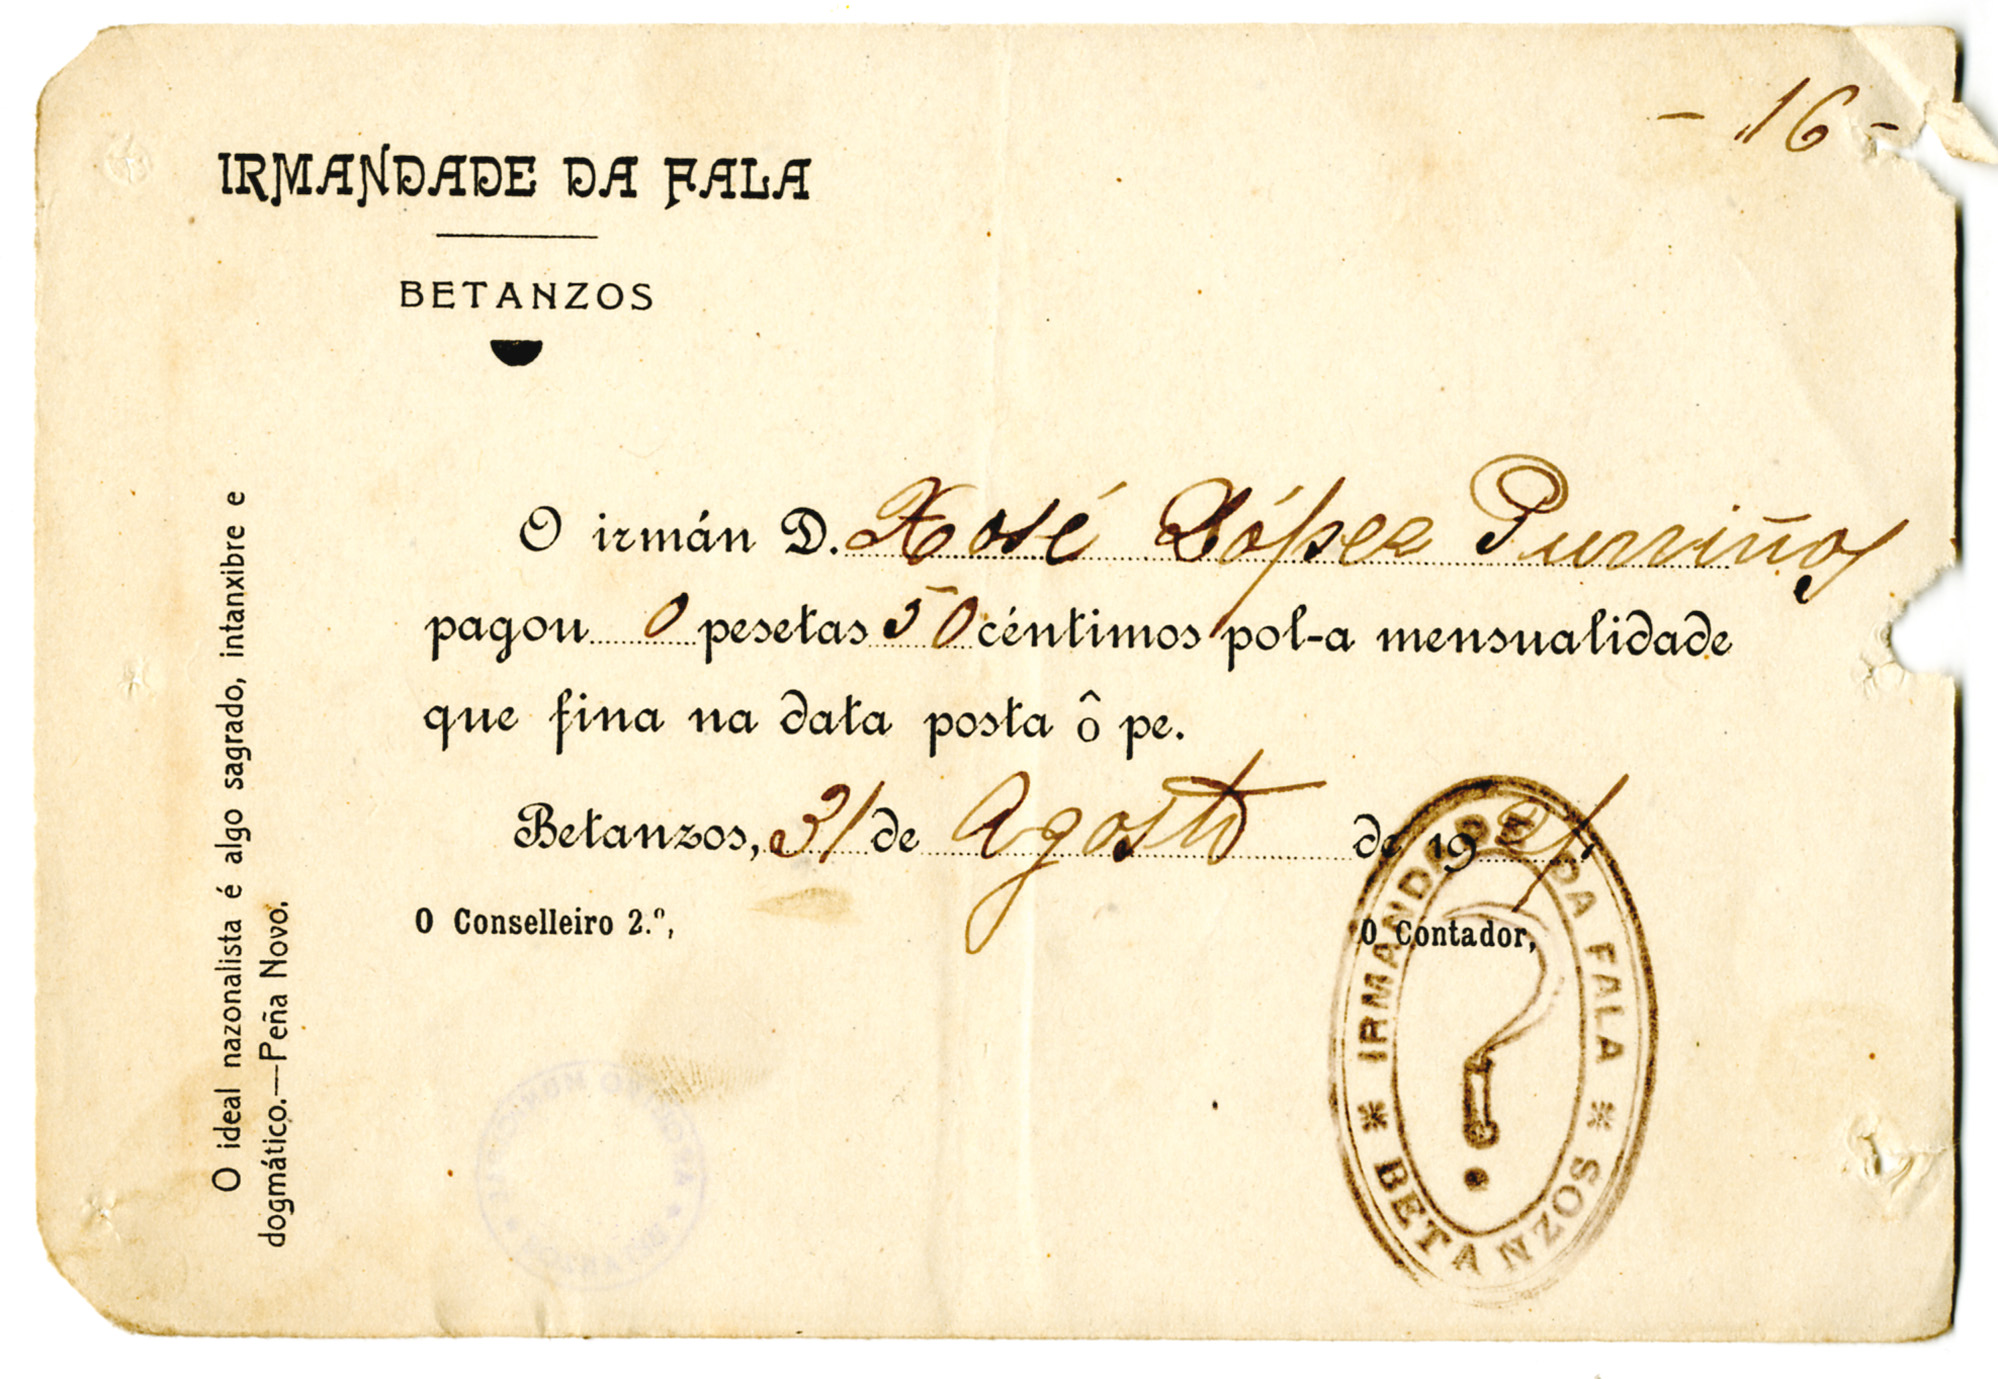 - 16 -
IRMANDADE DA FALA
BETANZOS
O irmán D. Xosé López Purriños
pagou 0 pesetas 50 céntimos pol-a mensualidade
que fina na data posta ô pe.
Betanzos, 31 de Agosto de 1921.
O Conselleiro 2.º,
O Contador,
O ideal nazonalista é algo sagrado, intanxibre e
dogmático.—Peña Novo.
* IRMANDADE DA FALA *
BETANZOS